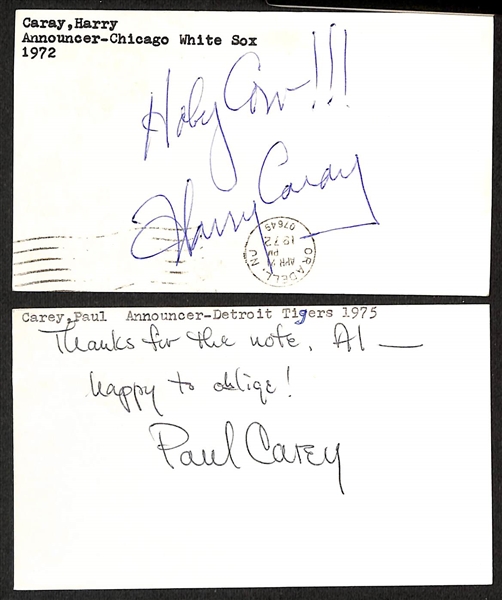 Caray,Harry
Announcer-Chicago White Sox
1972
Holy Cow!!!
Harry Caray
ORADELL, NJ
APR 21
PM
1972
07649
Carey,Paul Announcer-Detroit Tigers 1975
Thanks for the note, Al —
happy to oblige!
Paul Carey